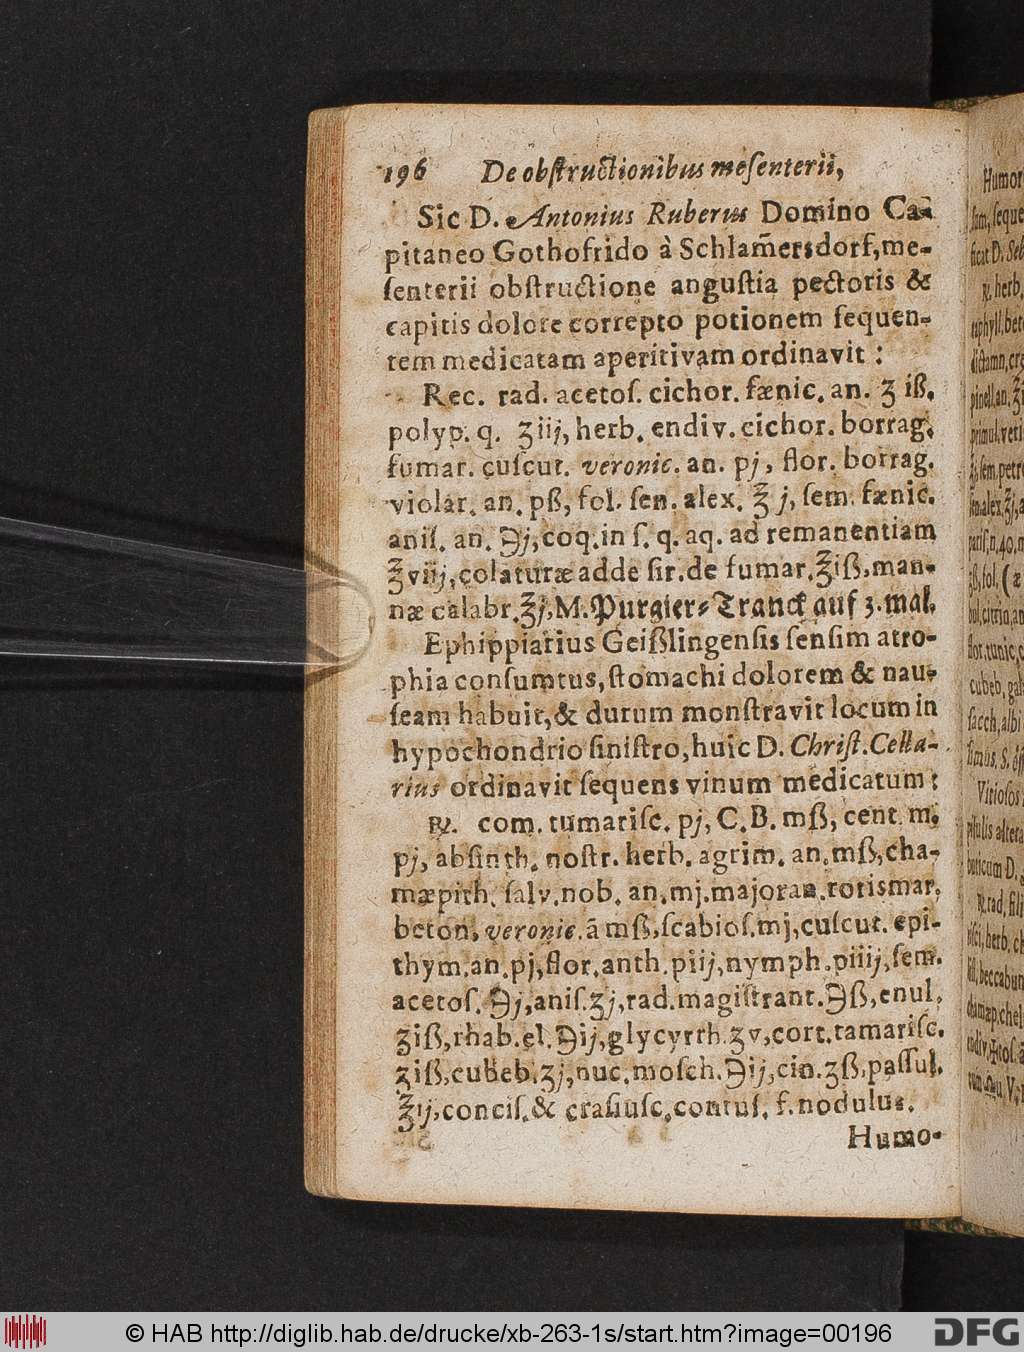 196 De obſtructionibus meſenterii,
Sic D. Antonius Ruberus Domino Ca-
pitaneo Gothofrido à Schlam̃ersdorf, me-
ſenterii obſtructione anguſtia pectoris &
capitis dolore correpto potionem ſequen-
tem medicatam aperitivam ordinavit :
Rec. rad. acetoſ. cichor. fænic. an. ʒ iß.
polyp. q. ʒiij, herb. endiv. cichor. borrag.
fumar. cuſcut. veronic. an. pj, flor. borrag.
violar. an. pß, fol. ſen. alex. ℥ j, ſem. fænic.
aniſ. an. ℈j, coq. in ſ. q. aq. ad remanentiam
℥viij, colaturæ adde ſir. de fumar. ℥iß, man-
næ calabr. ℥j, M. Purgier-Tranck auf 3. mal.
Ephippiarius Geißlingenſis ſenſim atro-
phia conſumtus, ſtomachi dolorem & nau-
ſeam habuit, & durum monſtravit locum in
hypochondrio ſiniſtro, huic D. Chriſt. Cella-
rius ordinavit ſequens vinum medicatum :
℞. com. tumariſc. pj, C. B. mß, cent. m.
pj, abſinth. noſtr. herb. agrim. an. mß, cha-
mæpith. ſalv. nob. an. mj. majoran. rorismar.
beton. veronic. ā mß, ſcabioſ. mj, cuſcut. epi-
thym. an. pj, flor. anth. piij, nymph. piiij, ſem.
acetoſ. ℈j, aniſ. ʒj, rad. magiſtrant. ℈ß, enul.
ʒiß, rhab. el. ℈ij, glycyrrh. ʒv, cort. tamariſc.
ʒiß, cubeb. ʒj, nuc. moſch. ℈ij, cin. ʒß, paſſul.
℥ij, conciſ. & craſiuſc. contuſ. f. nodulus.
Humo-
Humor
ſum, ſeque
ficat D. Seb
℞. herb.
pinell. an. ℥i
Vitioſos
℞. rad. fili
© HAB http://diglib.hab.de/drucke/xb-263-1s/start.htm?image=00196
DFG